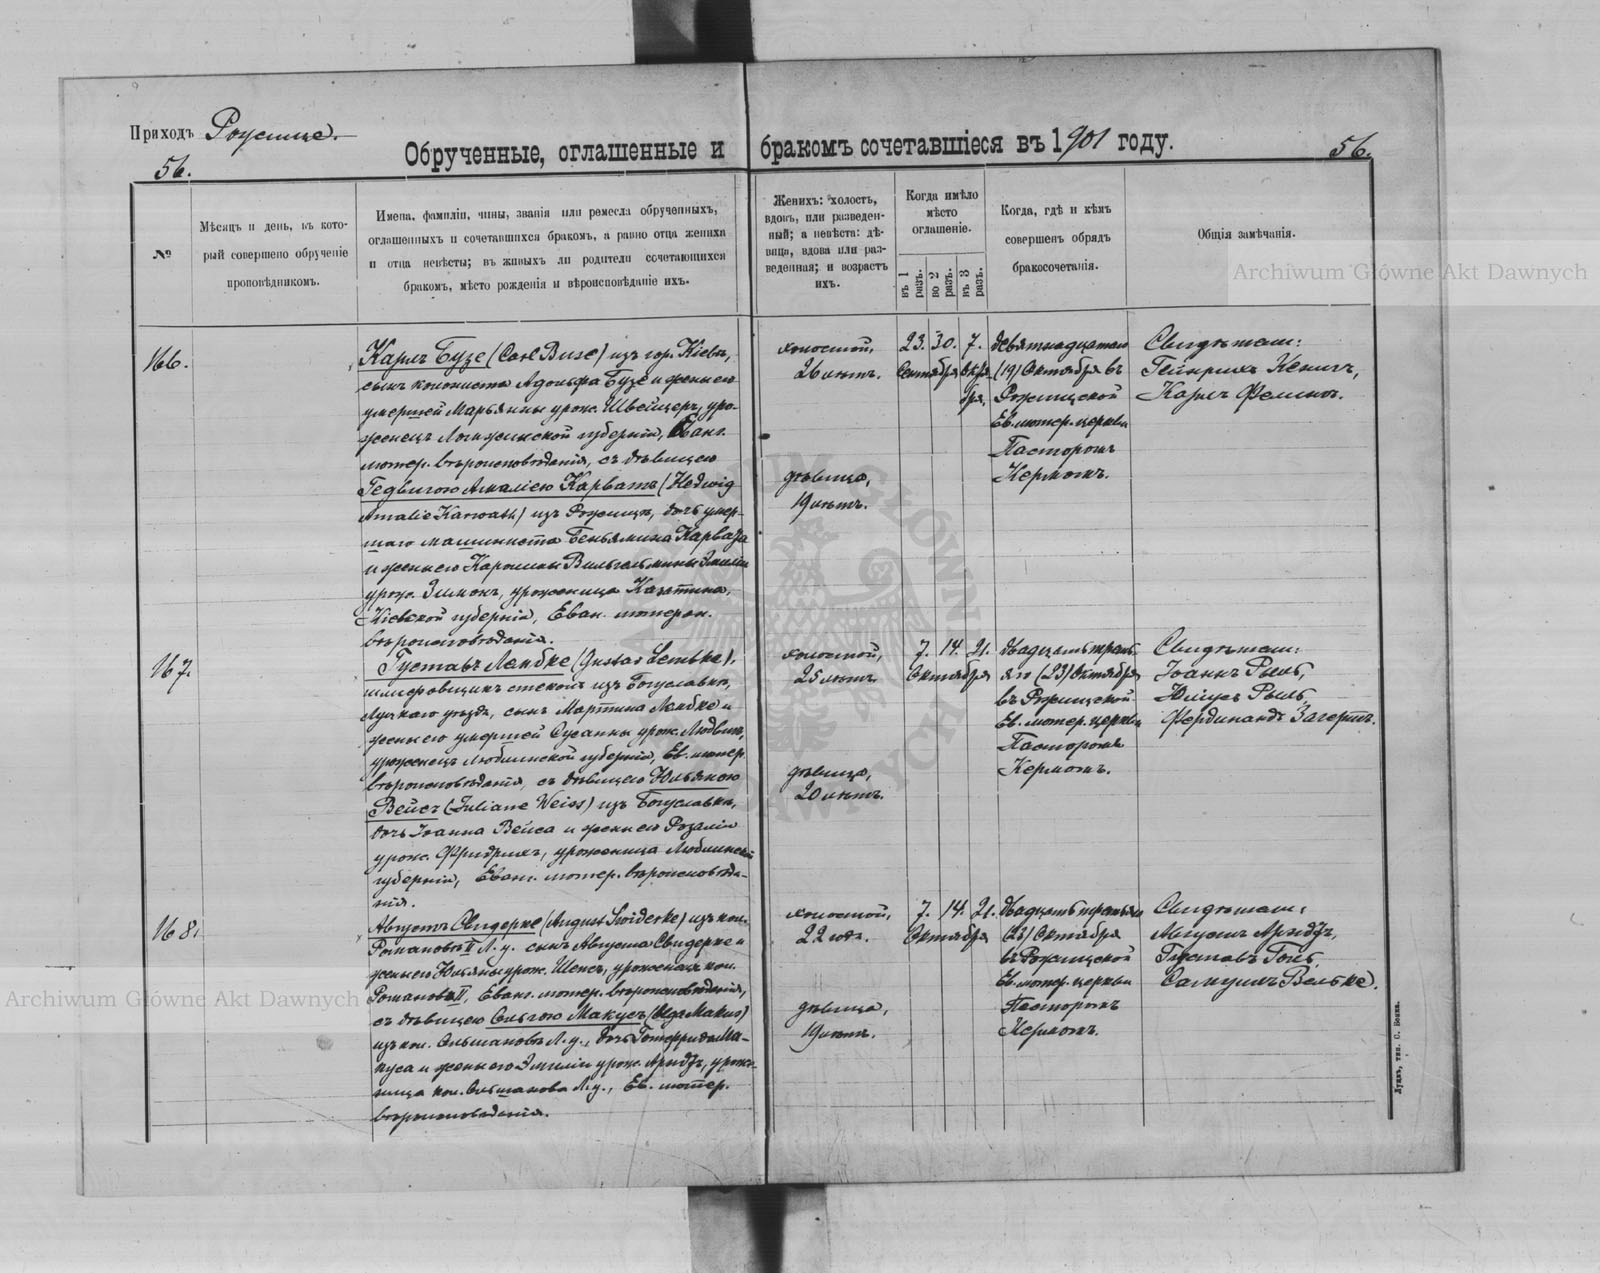 Приходъ Рожище.
56.
Обрученные, оглашенные и бракомъ сочетавшіеся въ 1901 году.
56.
№
Мѣсяцъ и день, въ кото-
рый совершено обрученіе
проповѣдникомъ.
Имена, фамиліи, чины, званія или ремесла обрученныхъ,
оглашенныхъ и сочетавшихся бракомъ, а равно отца жениха
и отца невѣсты; въ живыхъ ли родители сочетающихся
бракомъ, мѣсто рожденія и вѣроисповѣданіе ихъ.
Женихъ: холостъ,
вдовъ, или разведен-
ный; а невѣста: дѣ-
вица, вдова или раз-
веденная; и возрастъ
ихъ.
Когда имѣло
мѣсто
оглашеніе.
въ 1 разъ.
во 2 разъ.
въ 3 разъ.
Когда, гдѣ и кѣмъ
совершенъ обрядъ
бракосочетанія.
Общія замѣчанія.
Archiwum Główne Akt Dawnych
166.
Карлъ Бузе (Carl Buse) изъ гор. Кіева,
сынъ колониста Адольфа Бузе и жены его
умершей Марьянны урож. Швейцеръ, уро-
женецъ Ломжинской губерніи, Еванг.
лютер. вѣроисповѣданія, съ дѣвицею
Гедвигою Амаліею Карватъ (Hedwig
Amalie Karwath) изъ Рожищъ, дочь умер-
шаго машиниста Беньямина Карвата
и жены его Каролины Вильгельмины Эмиліи
урож. Эльмонъ, уроженица Казатина,
Кіевской губерніи, Еван. лютеран.
вѣроисповѣданія.
холостой,
26 лѣтъ.
дѣвица,
19 лѣтъ.
23. 30. 7.
Сентября Октя-
бря.
девятнадцатаго
(19) Октября въ
Рожищской
Ев. лютер. церкви
Пасторомъ
Кермомъ.
Свидѣтели:
Гейнрихъ Кенигъ,
Карлъ
167.
Густавъ Лембке (Gustav Lembke),
шлифовщикъ стеколъ изъ Богуславки,
Луцкаго уѣзда, сынъ Мартина Лембке и
жены его умершей Сусанны урож. Людвигъ,
уроженецъ Люблинской губерніи, Ев. лютер.
вѣроисповѣданія, съ дѣвицею Юльяною
Вейсъ (Juliane Weiss) изъ Богуславки,
дочь Іоанна Вейса и жены его Розаліи
урож. Фридрихъ, уроженица Люблинской
губерніи, Еванг. лютер. вѣроисповѣда-
нія.
холостой,
25 лѣтъ.
дѣвица,
20 лѣтъ.
7. 14. 21.
Октября
Двадцать треть-
яго (23) Октября
въ Рожищской
Ев. лютер. церкви
Пасторомъ
Кермомъ.
Свидѣтели:
Іоаннъ Рыль,
Юліусъ Рыль
Фердинандъ Загертъ.
168.
Августъ Свидерке (August Swiderke) изъ кол.
Романовъ II Л. у. сынъ Августа Свидерке и
жены его Юльяны урож. Шенсъ, уроженецъ кол.
Романовъ II, Еванг. лютер. вѣроисповѣданія,
съ дѣвицею Ольгою Макусъ (Olga Makus)
изъ кол. Ольшановъ Л. у., дочь Готфрида Ма-
куса и жены его Эмиліи урож. Арндъ, урож.
ница кол. Ольшанова Л. у., Ев. лютер.
вѣроисповѣданія.
холостой,
22 года.
дѣвица,
19 лѣтъ.
7. 14. 21.
Октября
Двадцать третьяго
(23) Октября
въ Рожищской
Ев. лютер. церкви
Пасторомъ
Кермомъ.
Свидѣтели:
Августъ Арндъ,
Густавъ
Самуилъ Вельке.
Archiwum Główne Akt Dawnych
Луцкъ, тип. С. Бонка.